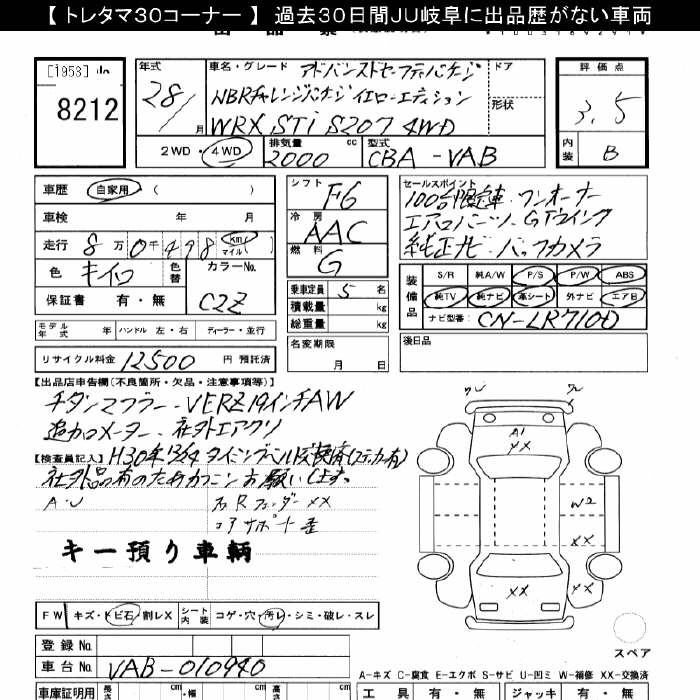 【 トレタマ３０コーナー 】 過去３０日間ＪＵ岐阜に出品歴がない車両
8212
年式 28/ 月
車名・グレード アドバンスドセーフティパッケージ
NBRチャレンジパッケージ イエローエディション
WRX STi S207 4WD
ドア
形状
2WD・4WD
排気量 2000 cc
型式 CBA-VAB
評価点 3.5
内装 B
車歴 自家用 ( )
車検 年 月
走行 8万0千498 km マイル
色 キイロ 色替
カラーNo. C2Z
保証書 有・無
モデル年式 年
ハンドル 左・右
ディーラー・並行
リサイクル料金 12500 円 預託済
シフト F6
冷房 AAC
燃料 G
乗車定員 5 名
積載量 kg
総重量 kg
名変期限 月 日
セールスポイント
100台限定車・ワンオーナー
エアロパーツ、GTウイング
純正ナビ・バックカメラ
装備品
S/R 純A/W P/S P/W ABS
純TV 純ナビ 革シート 外ナビ エアB
ナビ型番: CN-LR710D
後日品
【出品店申告欄(不良箇所・欠品・注意事項等)】
チタンマフラー・VERZ19インチAW
追加メーター、社外エアクリ
【検査員記入】 タイミングベルト交換済(ステッカー有)
社外品有のためカクニンお願いします。
A・U
右Rフェンダー XX
コアサポート歪
キー預り車輌
A1
XX
W2
XX
XX
XX
スペア
FW キズ・トビ石・割レX
シート内装 コゲ・穴・汚レ・シミ・破レ・スレ
登録No.
車台No. VAB-010940
A-キズ C-腐食 E-エクボ S-サビ U-凹ミ W-補修 XX-交換済
車庫証明用 長さ cm ・幅 cm 高さ cm
工具 有・無
ジャッキ 有・無